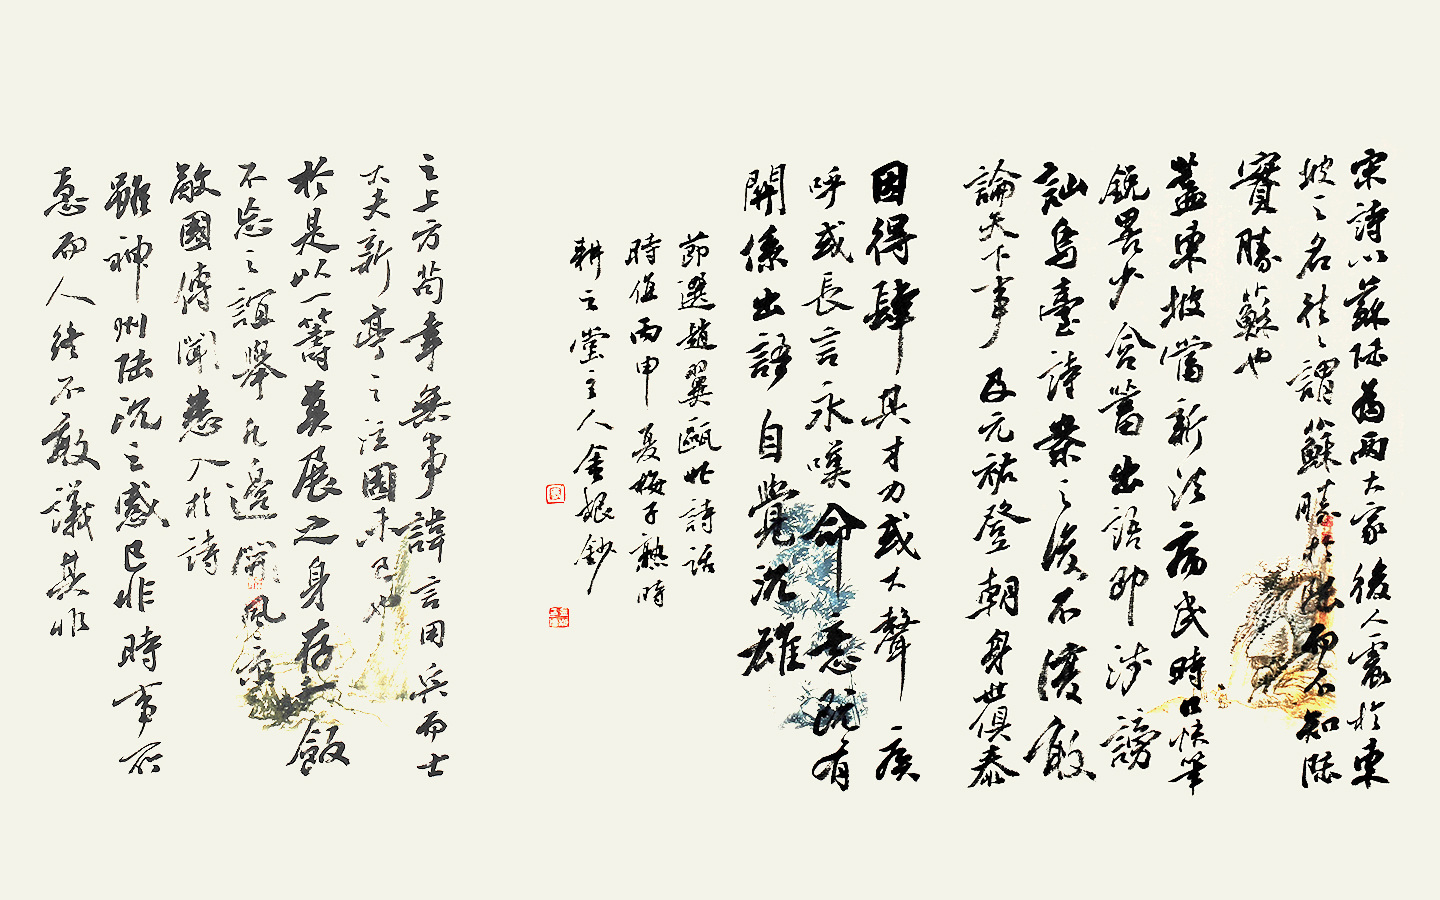 宋詩以蘇陸為兩大家後人震於東
坡之名往々謂蘇勝於陸而不知陸
實勝蘇也
蓋東坡當新法病民時口快筆
銳畧少含蓄出語即涉謗
訕烏臺詩案之後不復敢
論天下事及元祐登朝身世俱泰
因得肆其才力或大聲疾
呼或長言永嘆命意既有
關係出語自覺沉雄
節選趙翼甌北詩話
時值丙申夏梅子熟時
耕之堂主人金銀鈔
之上方苟幸無事諱言用兵而士
大夫新亭之泣固未已也
於是以一籌莫展之身存一飯
不忘之誼舉凡邊關風景
敵國傳聞悉入於詩
雖神州陸沉之感已非時事所
急而人終不敢議其非